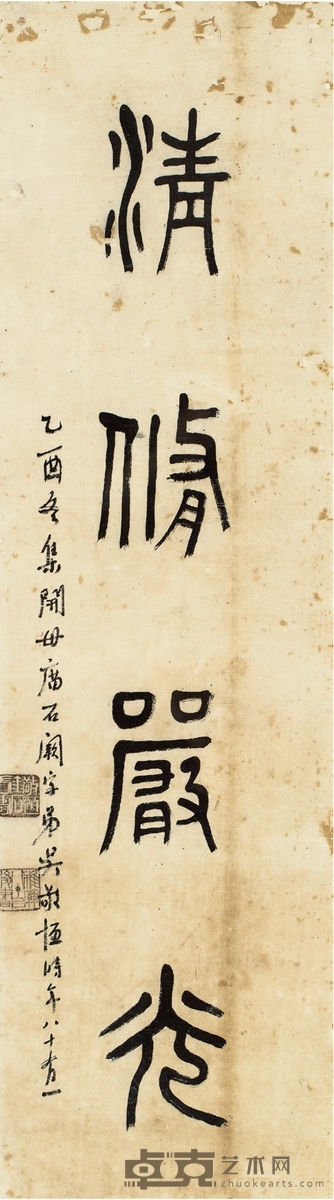 清脩嚴光
乙酉冬集開母廟石闕字弟吳敬恆時年八十有一
卓克艺术网
zhuokearts.com